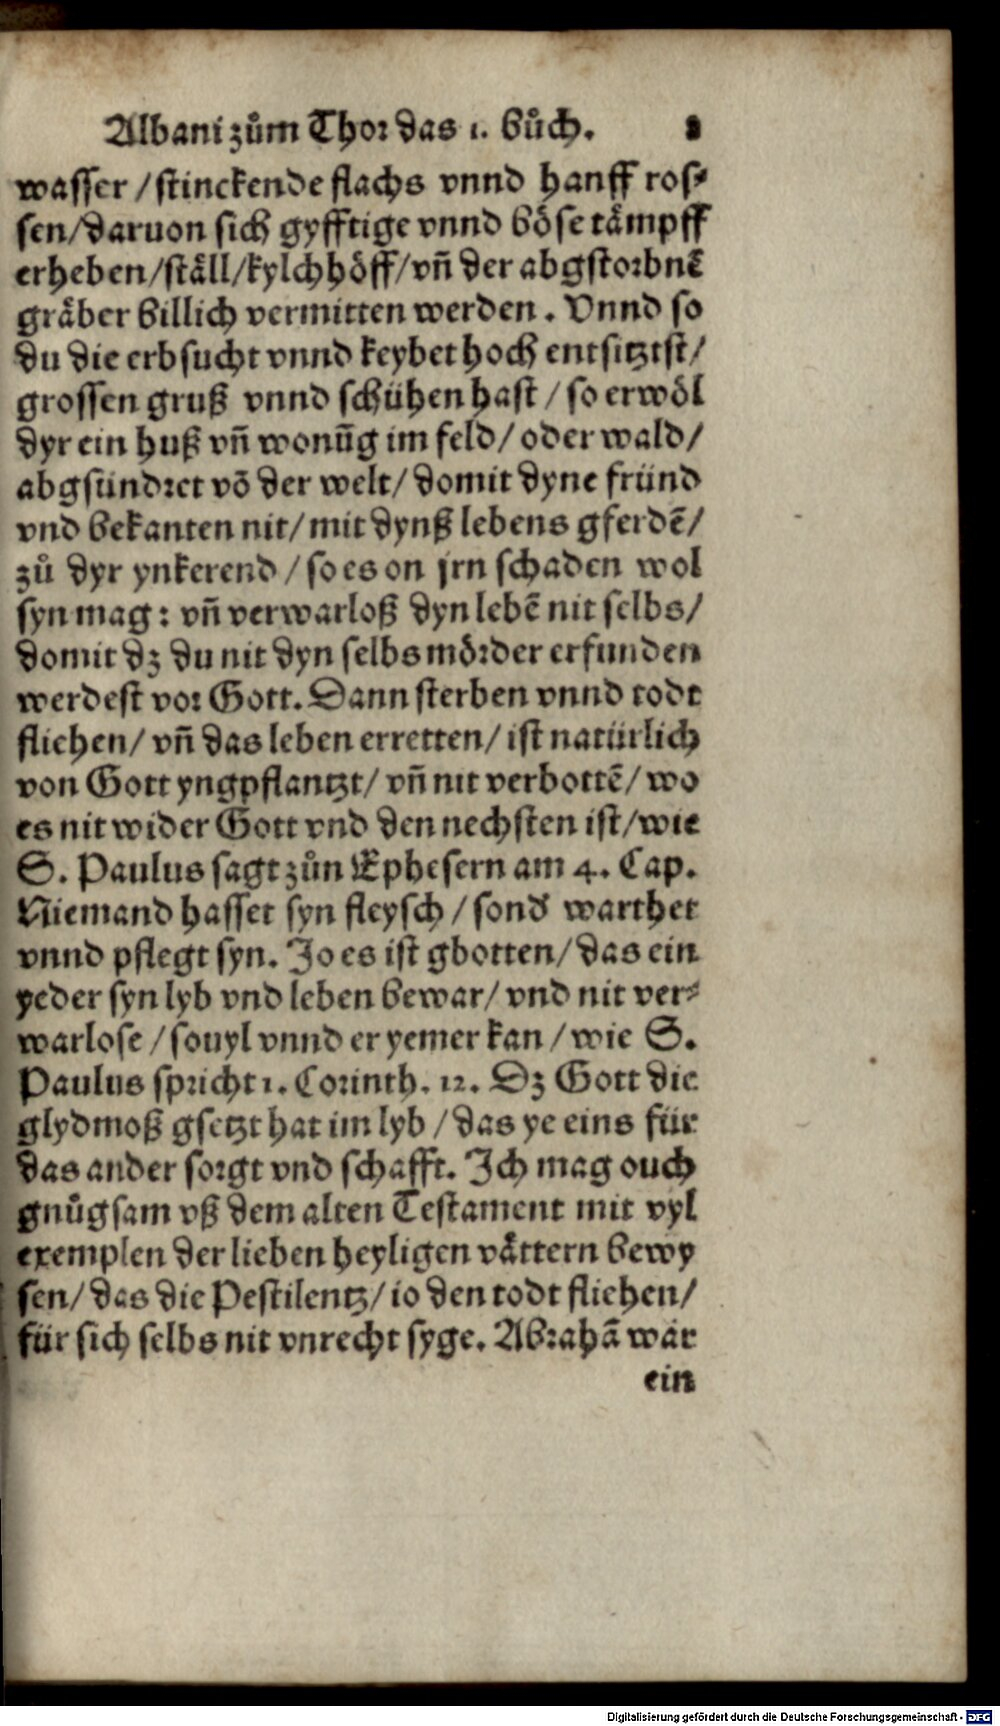 Albani zům Thor das 1. Bůch. 8
wasser / stinckende flachs vnnd hanff ros⸗
sen/daruon sich gyfftige vnnd böse tämpff
erheben/ställ/kylchhöff/vñ der abgstorbnē
gräber billich vermitten werden. Vnnd so
du die erbsucht vnnd keybet hoch entsitztst/
grossen gruß vnnd schühen hast / so erwöl
dyr ein huß vñ wonūg im feld/ oder wald/
abgsündret vō der welt/ domit dyne fründ
vnd bekanten nit/ mit dynß lebens gferdē/
zů dyr ynkerend / so es on jrn schaden wol
syn mag: vñ verwarloß dyn lebē nit selbs/
domit dz du nit dyn selbs mörder erfunden
werdest vor Gott. Dann sterben vnnd todt
fliehen/ vñ das leben erretten/ ist natürlich
von Gott yngpflantzt/ vñ nit verbottē/ wo
es nit wider Gott vnd den nechsten ist/wie
S. Paulus sagt zůn Ephesern am 4. Cap.
Niemand hasset syn fleysch / sond' warthet
vnnd pflegt syn. Jo es ist gbotten/ das ein
yeder syn lyb vnd leben bewar/ vnd nit ver⸗
warlose / souyl vnnd er yemer kan / wie S.
Paulus spricht 1. Corinth. 12. Dz Gott die
glydmoß gsetzt hat im lyb / das ye eins für
das ander sorgt vnd schafft. Jch mag ouch
gnůgsam vß dem alten Testament mit vyl
exemplen der lieben heyligen vättern bewy
sen/ das die Pestilentz/ io den todt fliehen/
für sich selbs nit vnrecht syge. Abrahā war
ein
Digitalisierung gefördert durch die Deutsche Forschungsgemeinschaft - DFG